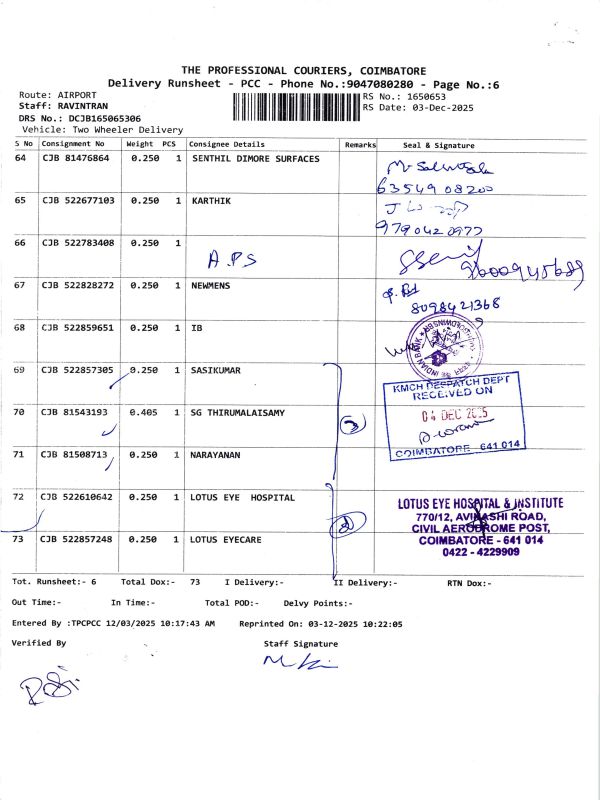 THE PROFESSIONAL COURIERS, COIMBATORE
Delivery Runsheet - PCC - Phone No.:9047080280 - Page No.:6
Route: AIRPORT
RS No.: 1650653
Staff: RAVINTRAN
RS Date: 03-Dec-2025
DRS No.: DCJB165065306
Vehicle: Two Wheeler Delivery
S No Consignment No Weight PCS Consignee Details Remarks Seal & Signature
64 CJB 81476864 0.250 1 SENTHIL DIMORE SURFACES
63549 08200
65 CJB 522677103 0.250 1 KARTHIK
9790420977
66 CJB 522783408 0.250 1
A.P.S
67 CJB 522828272 0.250 1 NEWMENS
8098421368
68 CJB 522859651 0.250 1 IB
INDIAN BANK
69 CJB 522857305 0.250 1 SASIKUMAR
KMCH DESPATCH DEPT
RECEIVED ON
04 DEC 2025
COIMBATORE - 641 014
70 CJB 81543193 0.405 1 SG THIRUMALAISAMY
3
71 CJB 81508713 0.250 1 NARAYANAN
72 CJB 522610642 0.250 1 LOTUS EYE HOSPITAL
2
LOTUS EYE HOSPITAL & INSTITUTE
770/12, AVINASHI ROAD,
CIVIL AERODROME POST,
COIMBATORE - 641 014
0422 - 4229909
73 CJB 522857248 0.250 1 LOTUS EYECARE
Tot. Runsheet:- 6 Total Dox:- 73 I Delivery:- II Delivery:- RTN Dox:-
Out Time:- In Time:- Total POD:- Delvy Points:-
Entered By :TPCPCC 12/03/2025 10:17:43 AM Reprinted On: 03-12-2025 10:22:05
Verified By Staff Signature